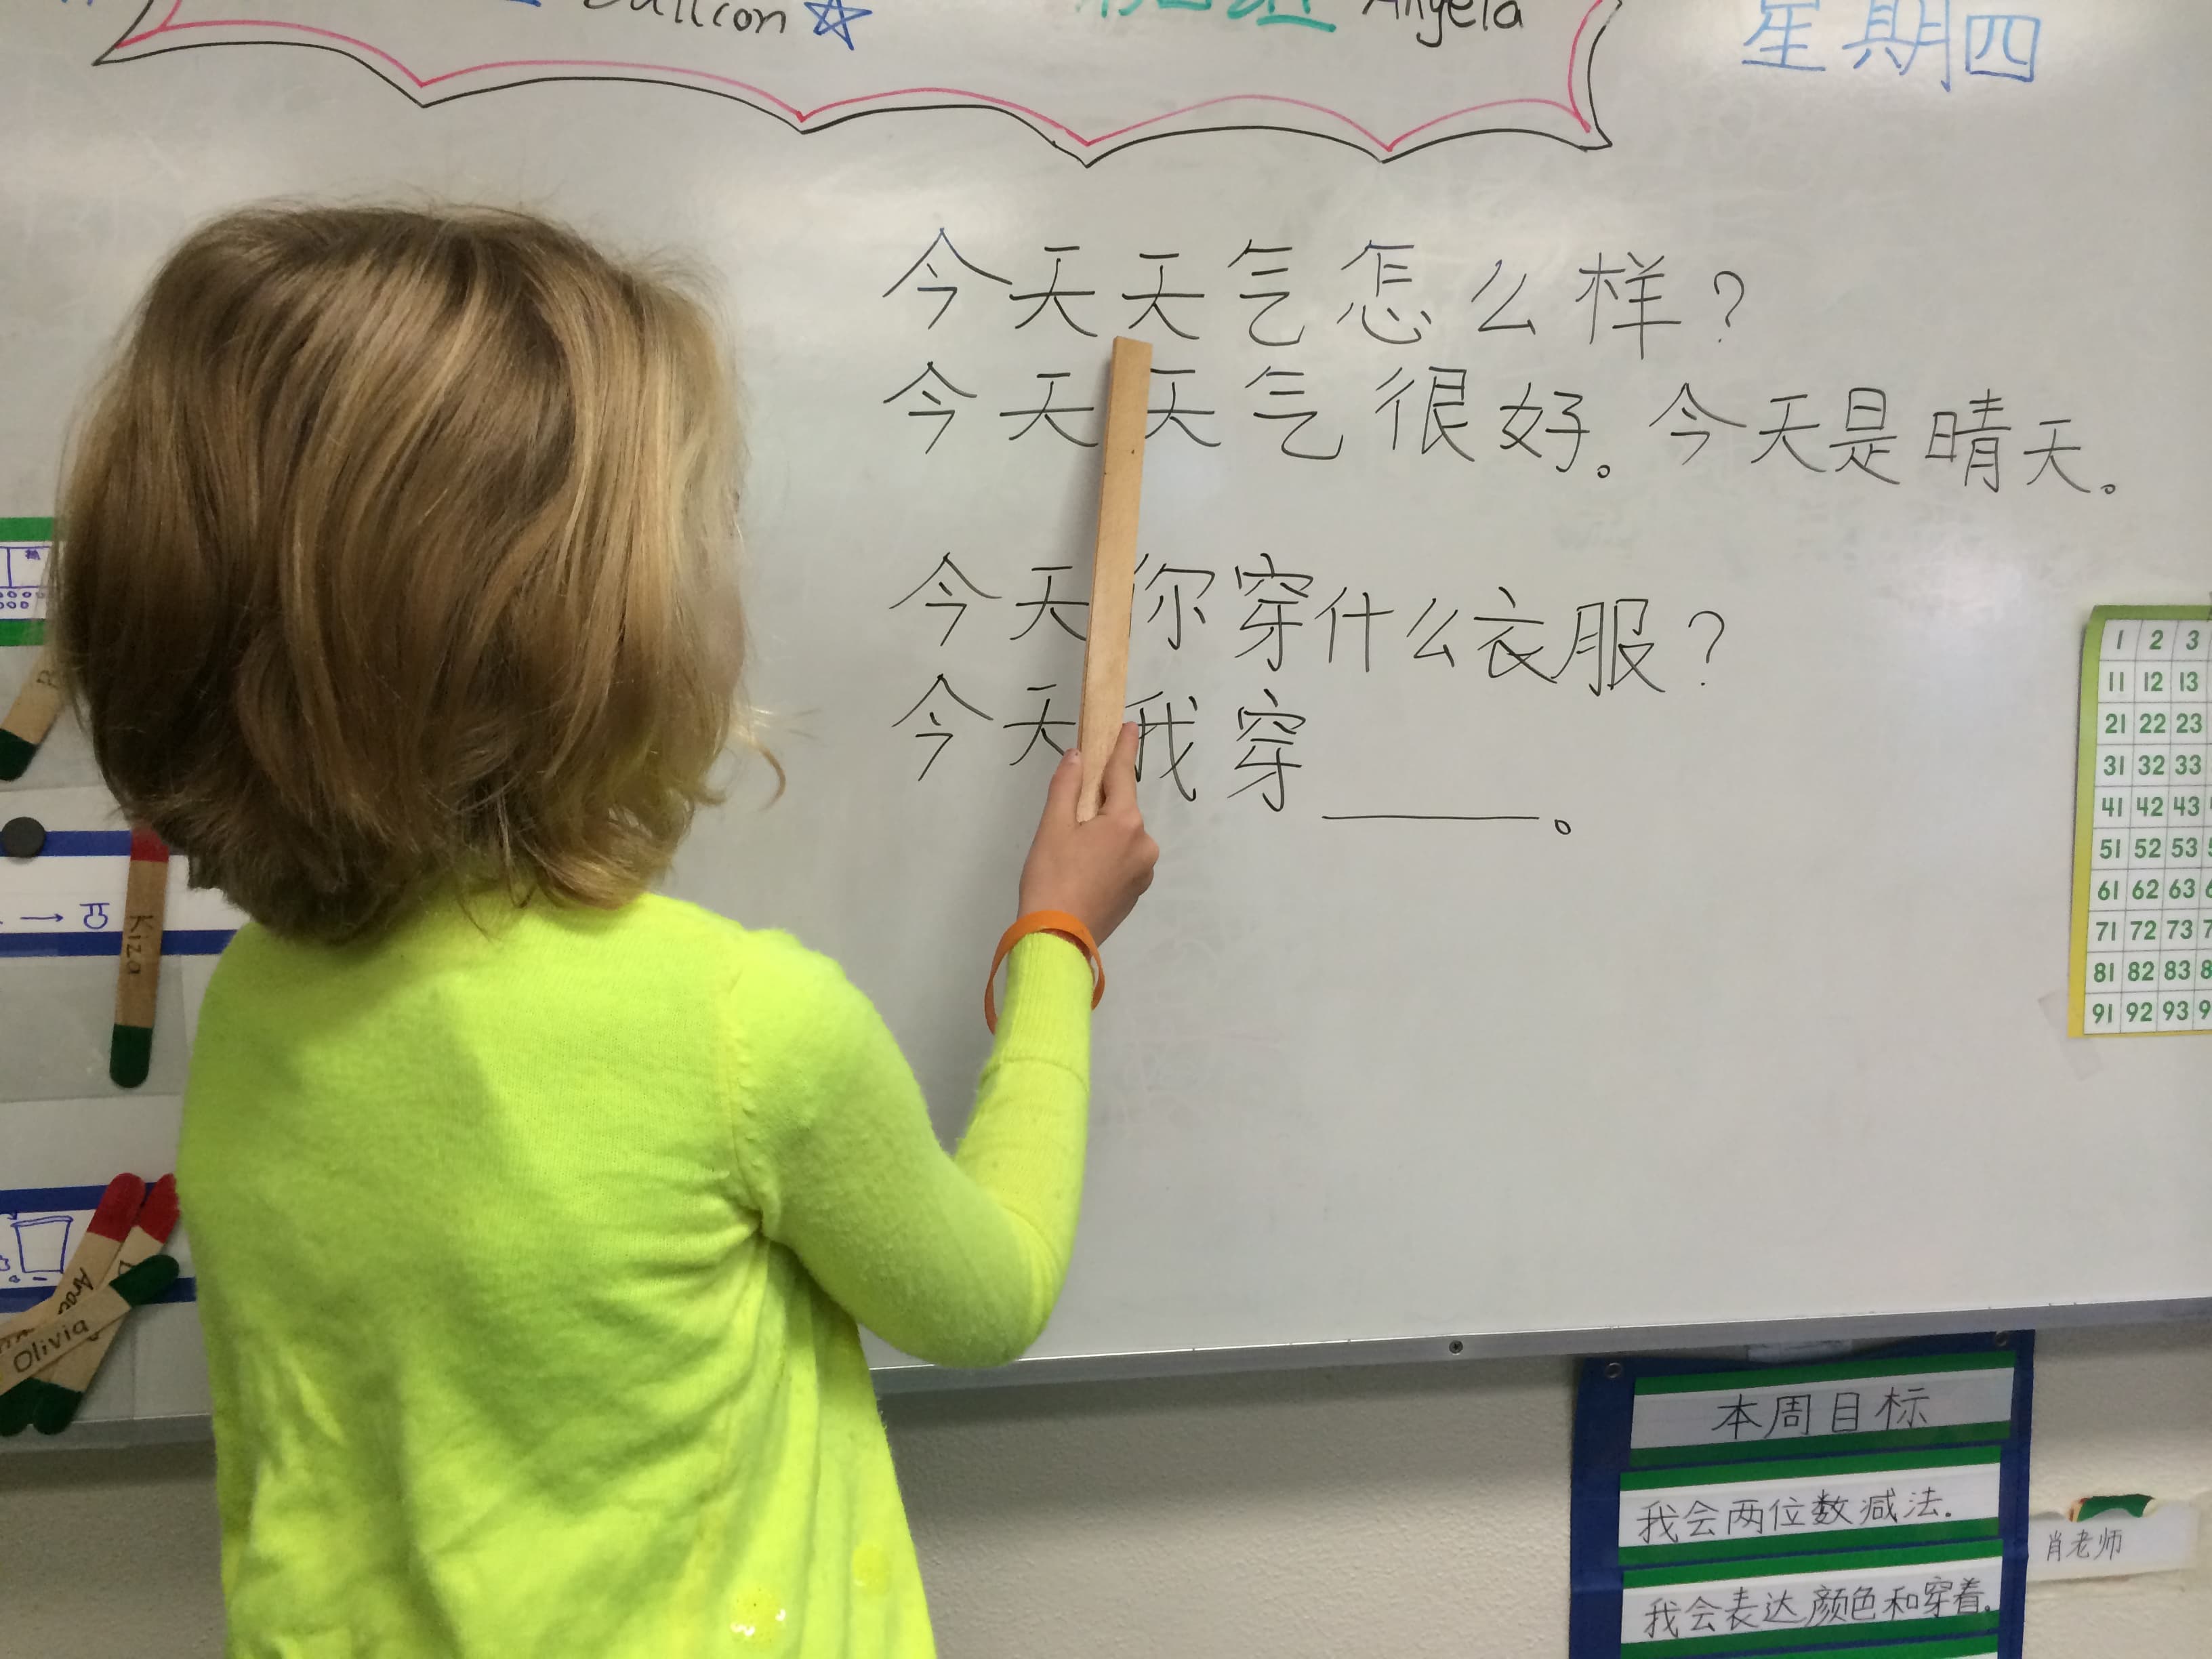 Angela
星期四
今天天气怎么样？
今天天气很好。今天是晴天。
今天你穿什么衣服？
今天我穿______。
1 2 3
11 12 13
21 22 23
31 32 33
41 42 43
51 52 53
61 62 63
71 72 73
81 82 83
91 92 93
Kiza
Olivia
本周目标
我会两位数减法.
我会表达颜色和穿着.
肖老师